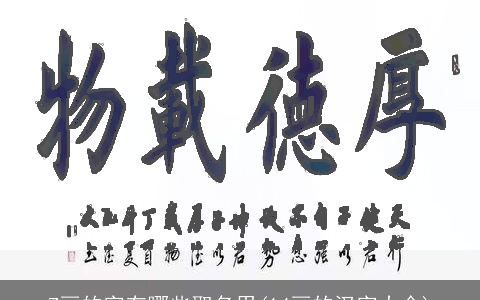 厚德載物
天行健君子以自強不息地勢坤君子以厚德載物丁酉年夏
7画的字有哪些取名用(14画的汉字大全)